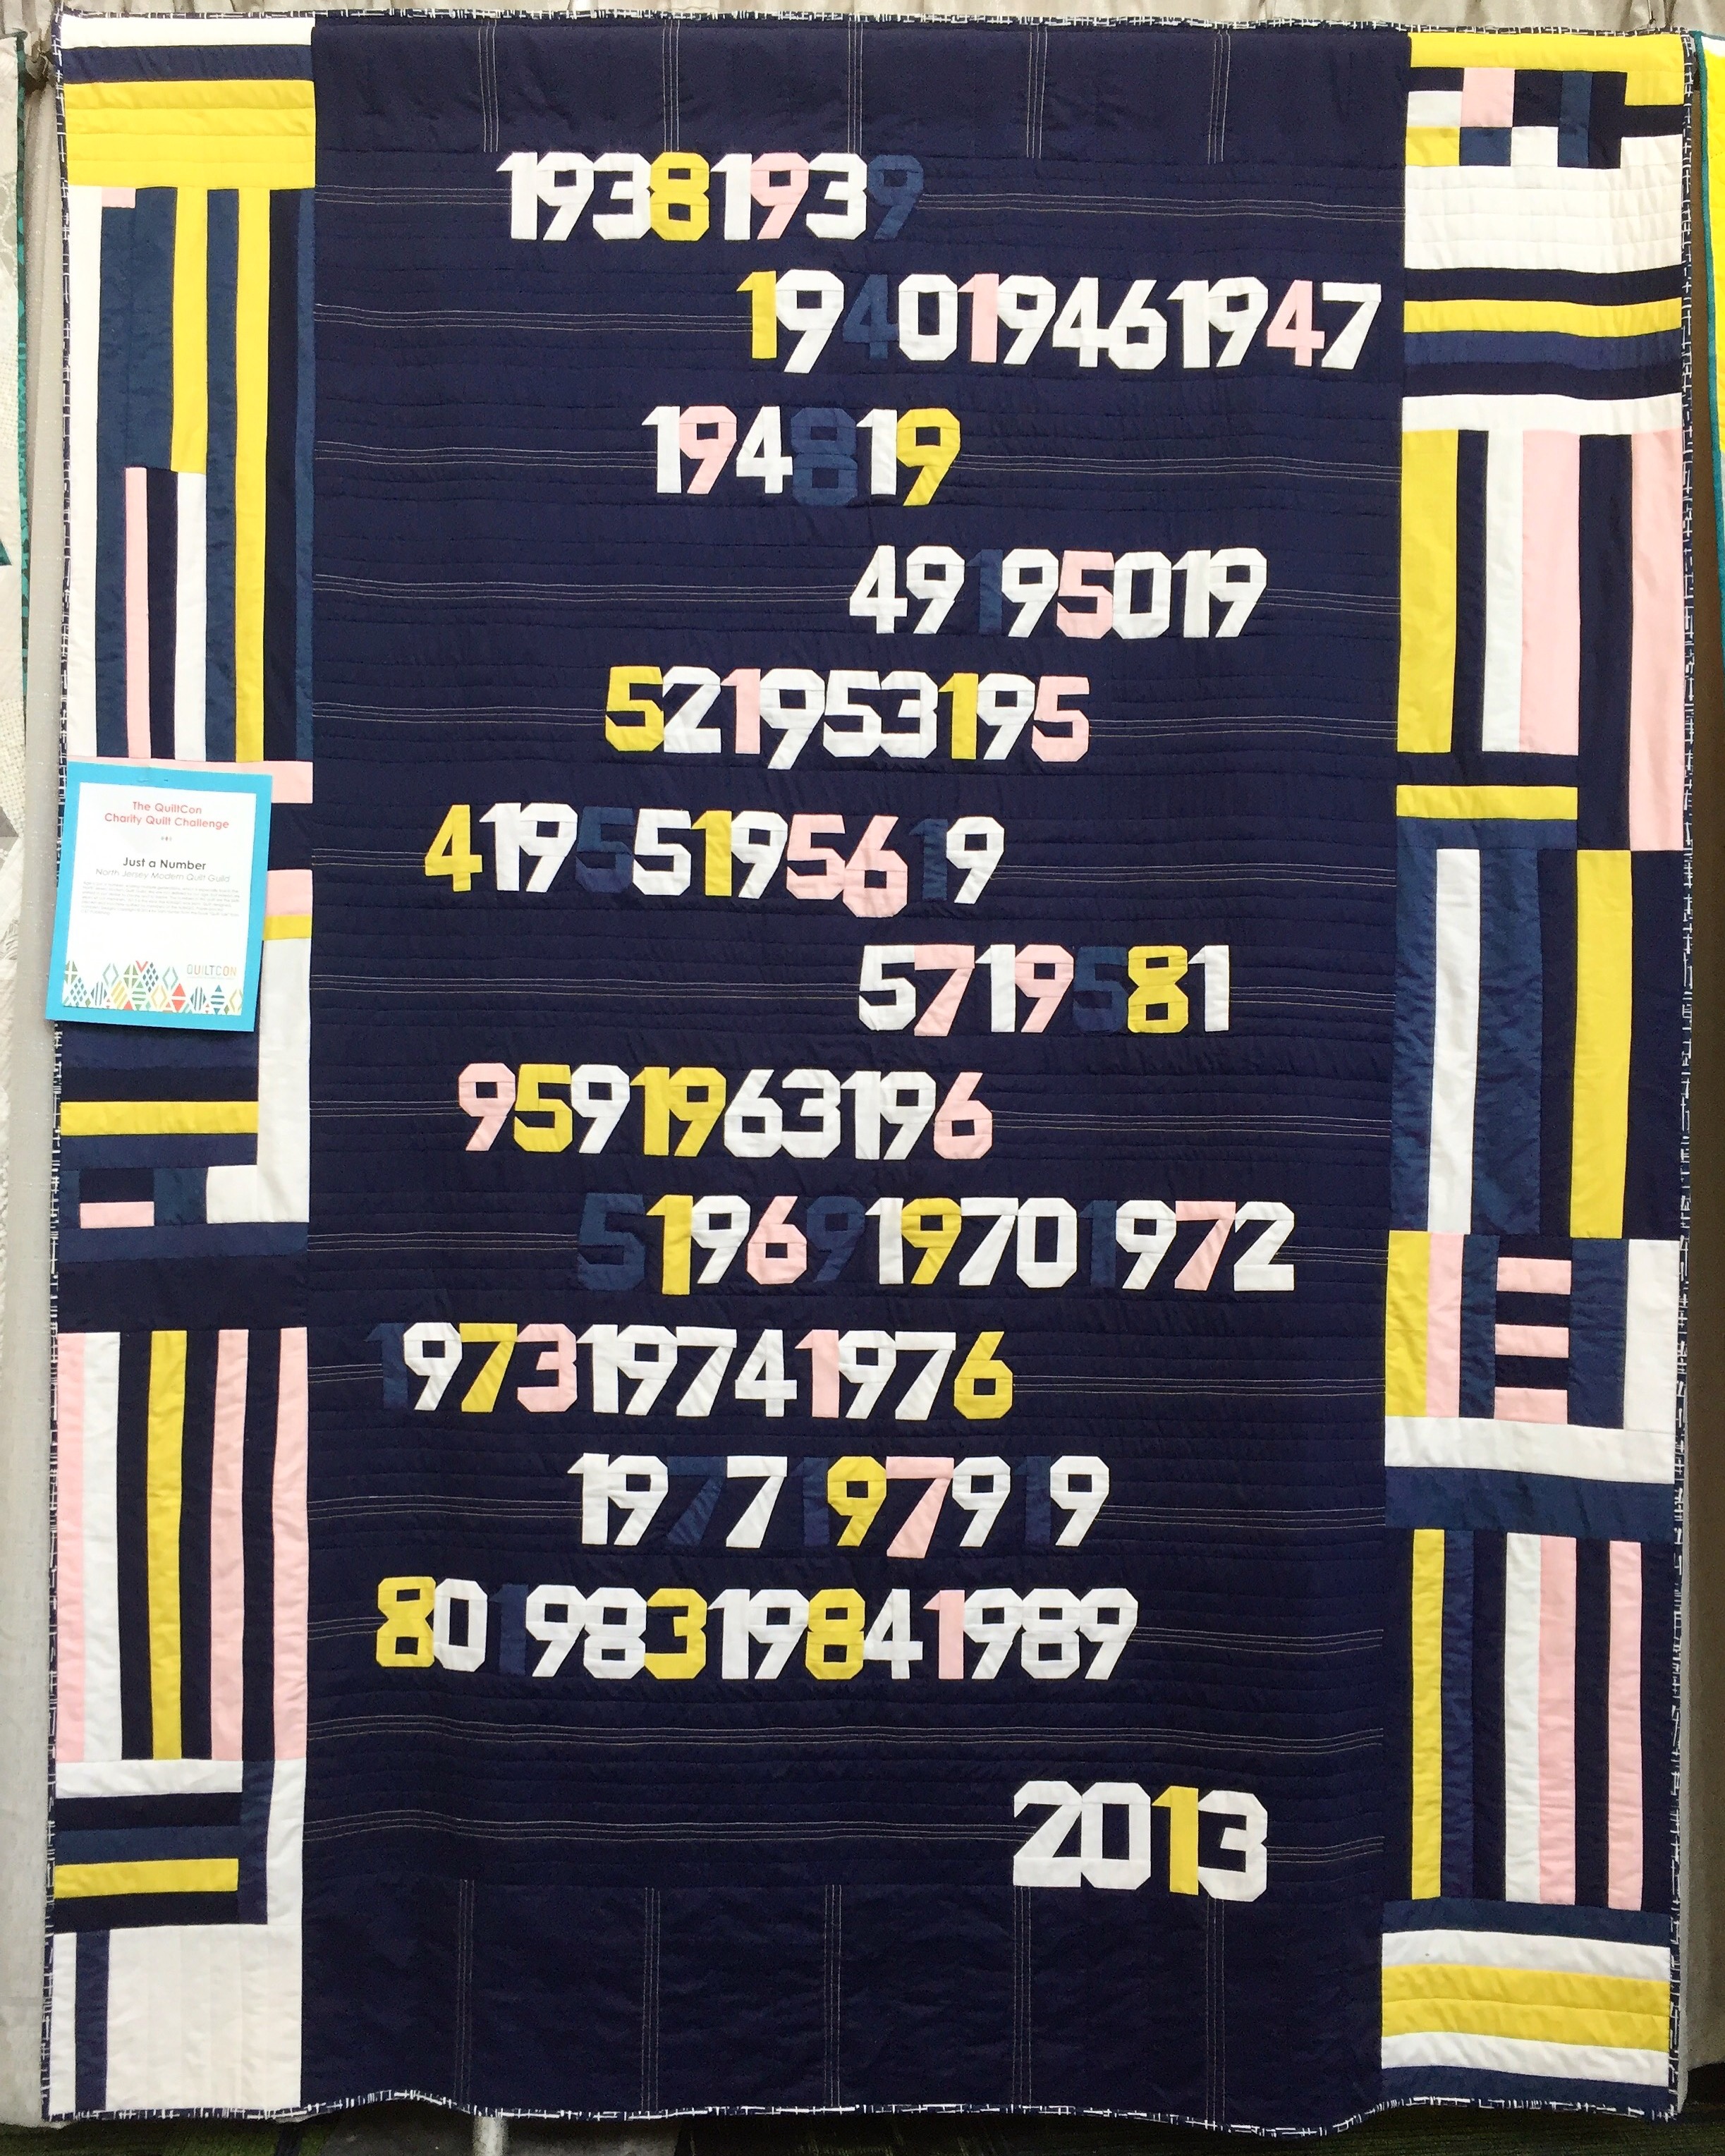 19381939
194019461947
194819
49195019
521953195
41955195619
5719581
959196319 6
5196919701972
1973197419 76
19771979 19
80198319841989
2013
The QuiltCon
Charity Quilt Challenge
Just a Number
North Jersey Modern Quilt Guild
QUILTCON